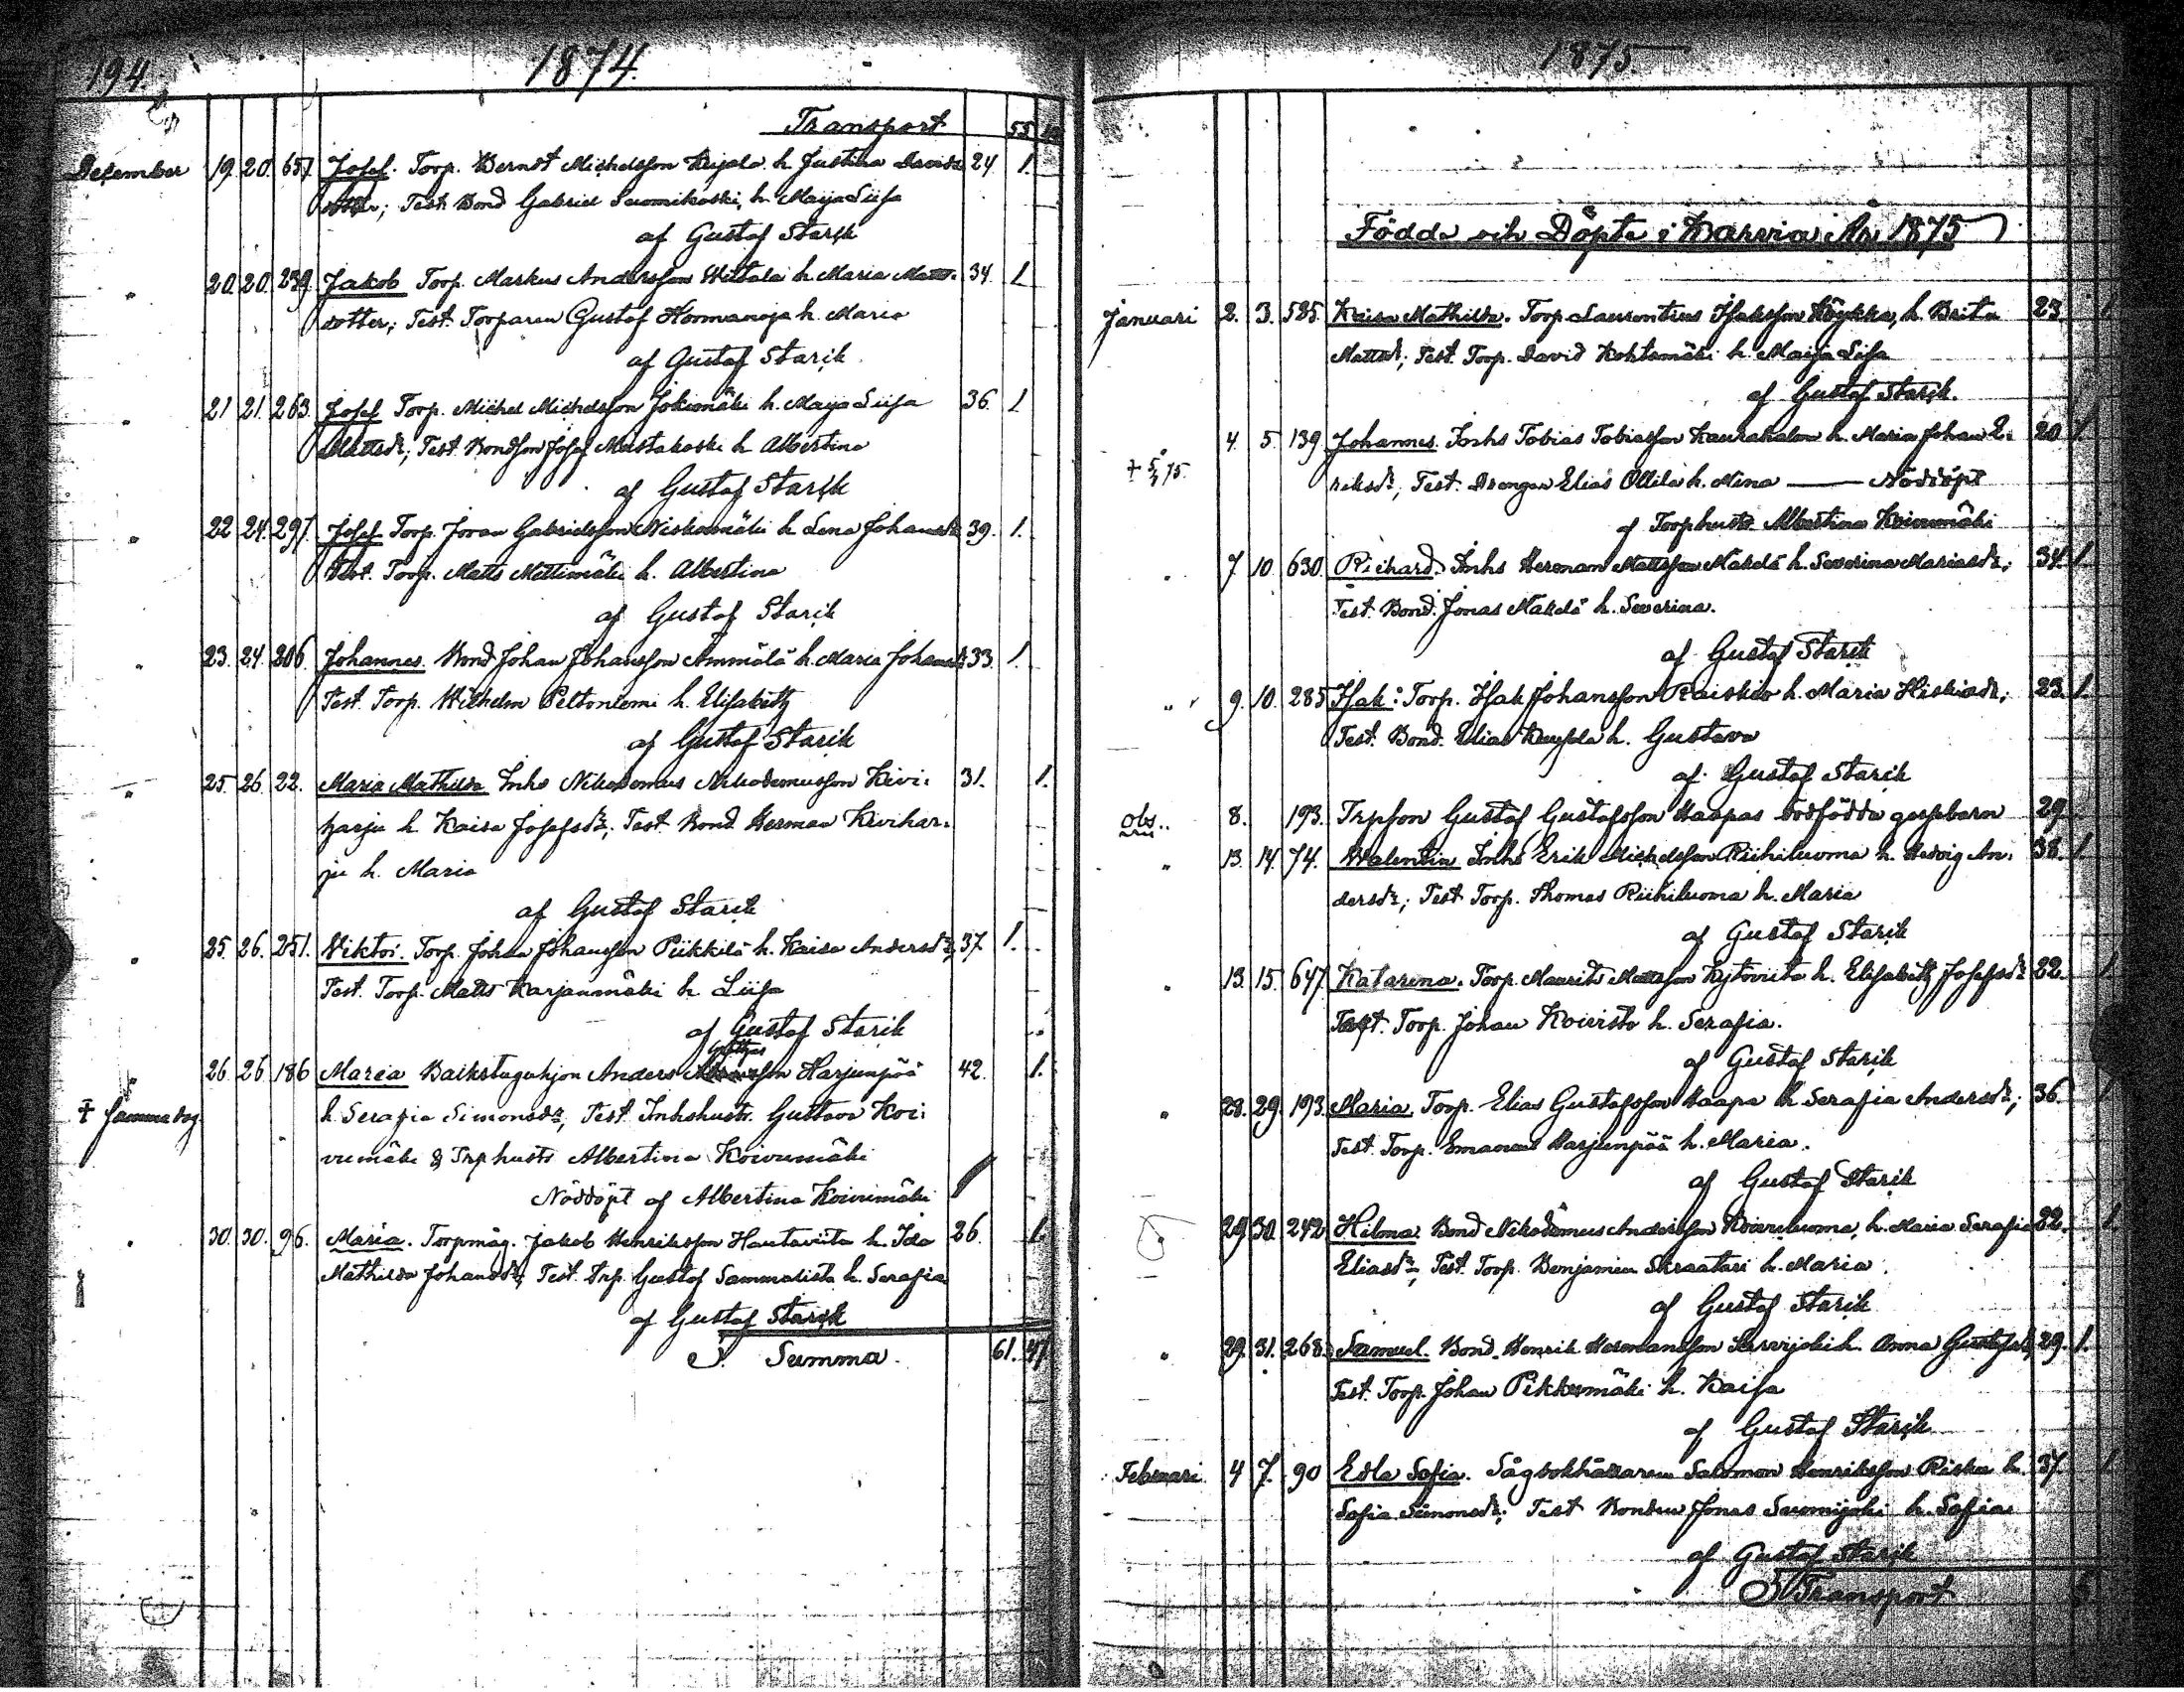 194.
1874.
Transport 55
December 19. 20. 657. Josef. Torp. Berndt Michelsson h. Justina Davids 24 1.
dotter; Test. Bond Gabriel Suomikoski, h. Maja Liisa
af Gustaf Starck
" 20. 20. 239. Jakob Torp. Markus Andersson h. Maria Matts- 34. 1
dotter; Test. Torparen Gustaf Hormanoja h. Maria
af Gustaf Starck.
" 21 21. 263. Josef Torp. Michel Michelsson Jokimäki h. Maja Liisa 36. 1
Mattsdr; Test. Bondson Josef Mustakoski h Albertina
af Gustaf Starck
" 22 24. 297. Josef Torp. Joran Gabrielsson Niskamäki h Lena Johansdr 39. 1.
Test. Torp. Matts Mettimäki h. Albertina
af Gustaf Starck
" 23. 24. 206. Johannes. Bond Johan Johansson Ämmälä h. Maria Johansdr 33. 1.
Test. Torp. Wilhelm Peltoniemi h. Elisabeth
af Gustaf Starck
" 25. 26. 22. Maria Mathilda Inhs Nikodemus Nikodemusson Kivi- 31. 1.
harju h Kaisa Josefsdr; Test. Bond Herman Kivihar-
ju h. Maria
af Gustaf Starck
" 25. 26. 251. Viktor. Torp. Johan Johansson Piikkilä h. Kaisa Andersdr 37 1.
Test. Torp. Matts Karjanmäki h Liisa
af Gustaf Starck
" 26. 26. 186 Maria Anders Harjunpää 42. 1.
† samma dag. h. Serafia Simonsdr, Test. Inhshustr. Gustava Koi-
vumäki & Trp hustr Albertina Koivumäki
Nöddöpt af Albertina Koivumäki
" 30. 30. 96. Maria. Torpmåg. Jakob Henriksson Hautaviita h. Ida 26. 1.
Mathilda Johansdr, Test. Trp. Gustaf Sammalisto h. Serafia
af Gustaf Starck
S. Summa. 61. 47
1875.
Födda och Döpte i Karvia År 1875
Januari 2. 3. 585. Kaisa Mathilda. Torp Laurentius Isaksson Köykkä, h. Brita 23. 1
Mattsdr; Test. Torp. David Kohtamäki h. Maija Liisa
af Gustaf Starck.
4. 5. 139 Johannes. Inhs Tobias Tobiasson h. Maria Johan E- 20 1.
† 5/3 75. riksdr; Test. Drengen Elias Ollila h. Mina — Nöddöpt
af Torphustr Albertina Koivumäki
" 7. 10. 630. Richard. Inhs Herman Mattsson Mäkelä h. Severina Mariasdr; 34. 1.
Test. Bond. Jonas Mäkelä h. Severina.
af Gustaf Starck
" 9. 10. 285 Isak: Torp. Isak Johansson Raiskio h. Maria Hiskiasdr; 23. 1.
Test. Bond. Elias h. Gustava
af Gustaf Starck
obs.. 8. 193. Trpson Gustaf Gustafsson Haapas dödfödda gossbarn 29.
" 13. 14. 74. Walentin Inhs Erik Michelsson Riihiluoma h. Hedvig An- 38. 1.
dersdr; Test Torp. Thomas Riihiluoma h. Maria
af Gustaf Starck
" 13. 15. 647 Katarina. Torp. Maurits Mattsson Kytöviita h. Elisabeth Josefsdr 22. 1
Test. Torp. Johan Koivisto h. Serafia.
af Gustaf Starck
" 28. 29. 193. Maria. Torp. Elias Gustafsson Haapa h Serafia Andersdr; 36. 1
Test. Torp. Emanuel Harjunpää h. Maria.
af Gustaf Starck
29 30. 242 Hilma Bond Nikodemus Andersson Koivuluoma, h. Maria Serafia 32. 1.
Eliasdr, Test. Torp. Benjamin Skraatari h. Maria.
af Gustaf Starck
" 29. 31. 268. Samuel. Bond. Henrik Hermansson h. Anna Gustafsdr, 29. 1.
Test. Torp. Johan Pikkumäki h. Kaisa
af Gustaf Starck
Februari 4 7. 90 Edla Sofia. Sågbokhållaren Salomon Henriksson Riska h. 37. 1
Sofia Simonsdr; Test Bonden Jonas Suomijoki h. Sofia
af Gustaf Starck
S Transport 5